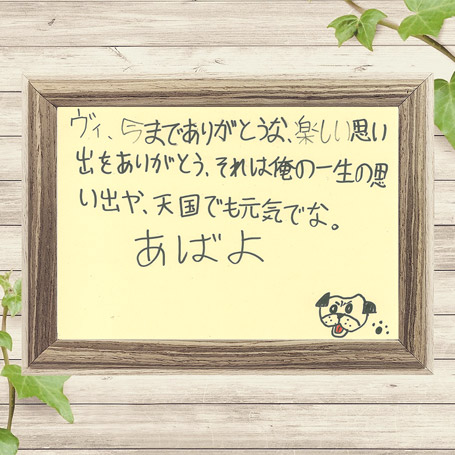 ヴィ、今までありがとうな、楽しい思い
出をありがとう、それは俺の一生の思
い出や、天国でも元気でな。
あばよ